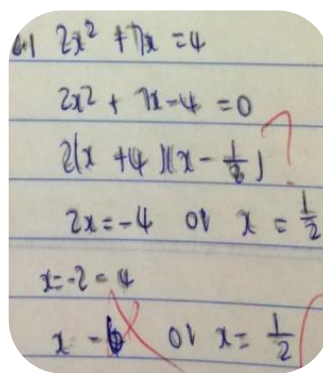 2x² + 7x = 4
2x² + 7x - 4 = 0
2(x + 4)(x - )
2x = -4 or x = 1/2
x = -2 = 4
x - or x = 1/2